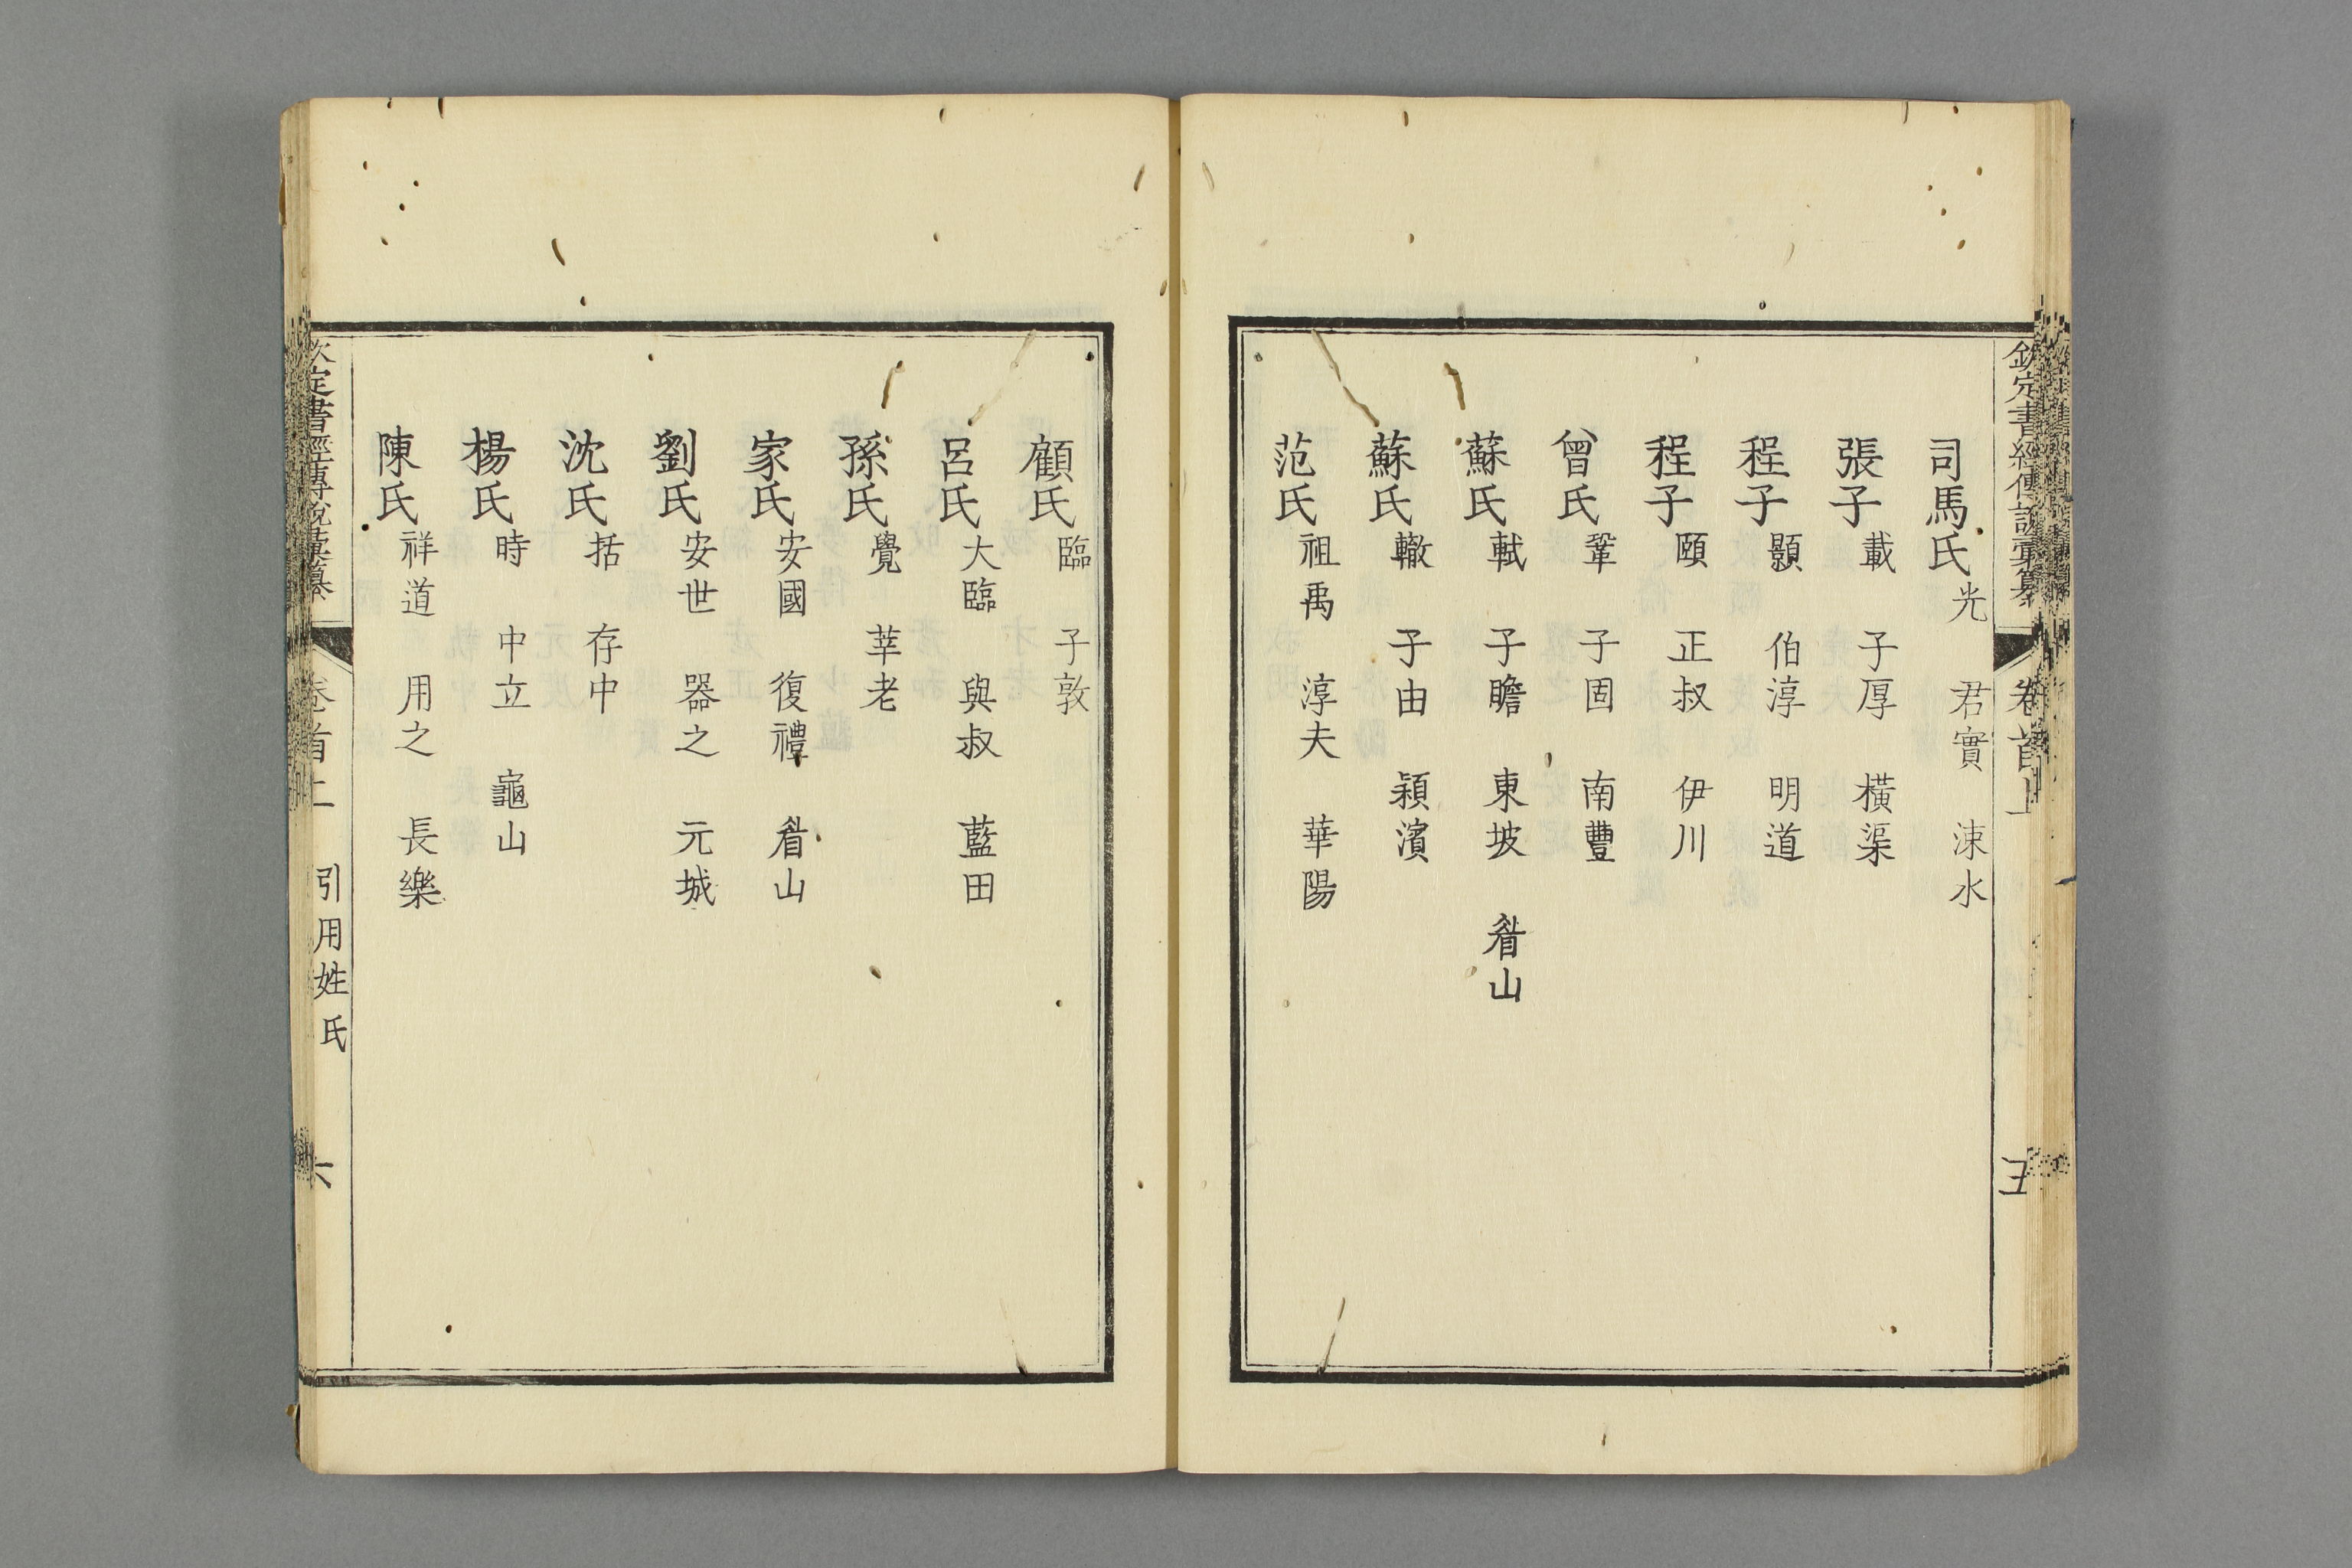 欽定書經傳說彙纂 卷首上 五
司馬氏光 君實 涑水
張子載 子厚 橫渠
程子顥 伯淳 明道
程子頤 正叔 伊川
曾氏鞏 子固 南豐
蘇氏軾 子瞻 東坡 眉山
蘇氏轍 子由 潁濱
范氏祖禹 淳夫 華陽
顧氏臨 子敦
呂氏大臨 與叔 藍田
孫氏覺 莘老
家氏安國 復禮 眉山
劉氏安世 器之 元城
沈氏括 存中
楊氏時 中立 龜山
陳氏祥道 用之 長樂
欽定書經傳說彙纂 卷首上 引用姓氏 六